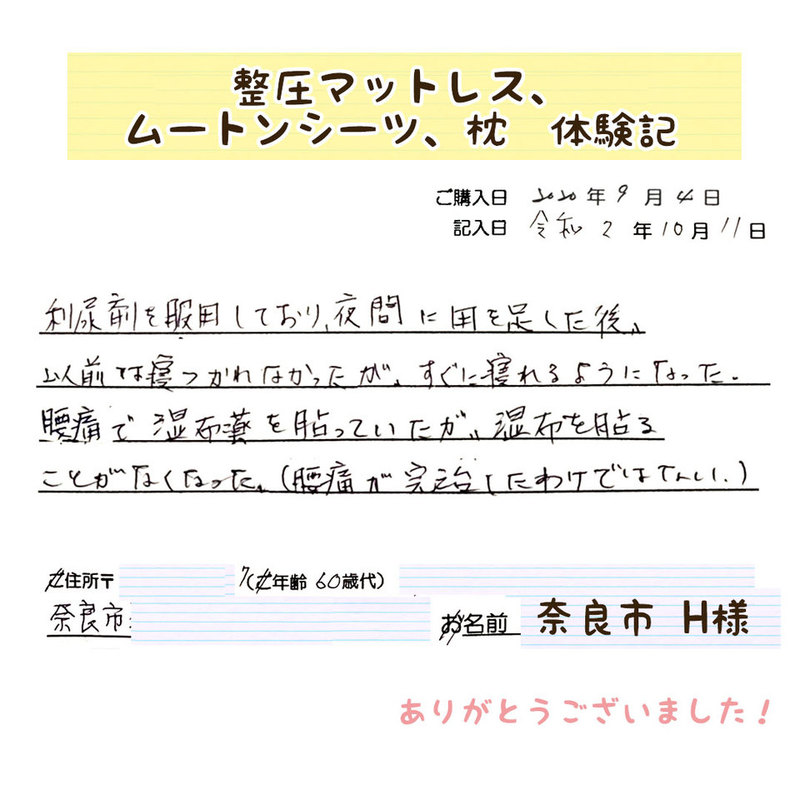 整圧マットレス、
ムートンシーツ、枕　体験記
ご購入日 2020年9月4日
記入日 令和2年10月11日
利尿剤を服用しており、夜間に用を足した後、
以前は寝つかれなかったが、すぐに寝れるようになった。
腰痛で湿布薬を貼っていたが、湿布を貼る
ことがなくなった。(腰痛が完治したわけではない。)
ご住所〒 (ご年齢 60歳代)
奈良市 お名前 奈良市 H様
ありがとうございました!